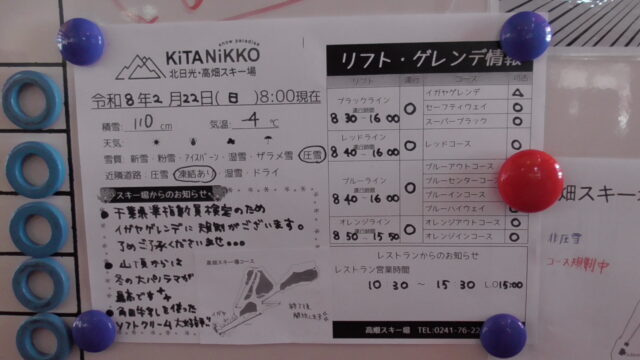 snow paradise
KiTANiKKO
北日光・高畑スキー場
令和8年2月22日(日)8:00現在
積雪: 110 cm 気温: -4 ℃
天気:
雪質: 新雪・粉雪・アイスバーン・湿雪・ザラメ雪・圧雪
近隣道路: 圧雪・凍結あり・湿雪・ドライ
スキー場からのお知らせ
●千葉県準指動員検定のため
イガヤゲレンデに規制がございます。
ご了承くださいませ...
●山頂からは
冬の大パノラマが
最高です
●会津牛乳を使った
ソフトクリーム大好評!!
高畑スキー場コース
リフト・ゲレンデ情報
リフト 運行 コース
ブラックライン
運行時間
8 30 ~ 16 00
イガヤゲレンデ △
セーフティウェイ ○
スーパーブラック ○
レッドライン
運行時間
8 40 ~ 16 00
レッドコース ○
ブルーライン
運行時間
8 40 ~ 16 00
ブルーアウトコース
ブルーセンターコース
ブルーインコース
ブルーハイウェイ
オレンジライン
運行時間
8 50 ~ 15 50
オレンジアウトコース ○
オレンジインコース ○
レストランからのお知らせ
レストラン営業時間
10:30 ~ 15:30 L.O15:00
高畑スキー場 TEL:0241-76-22
畑スキー
非圧雪
コース規制中